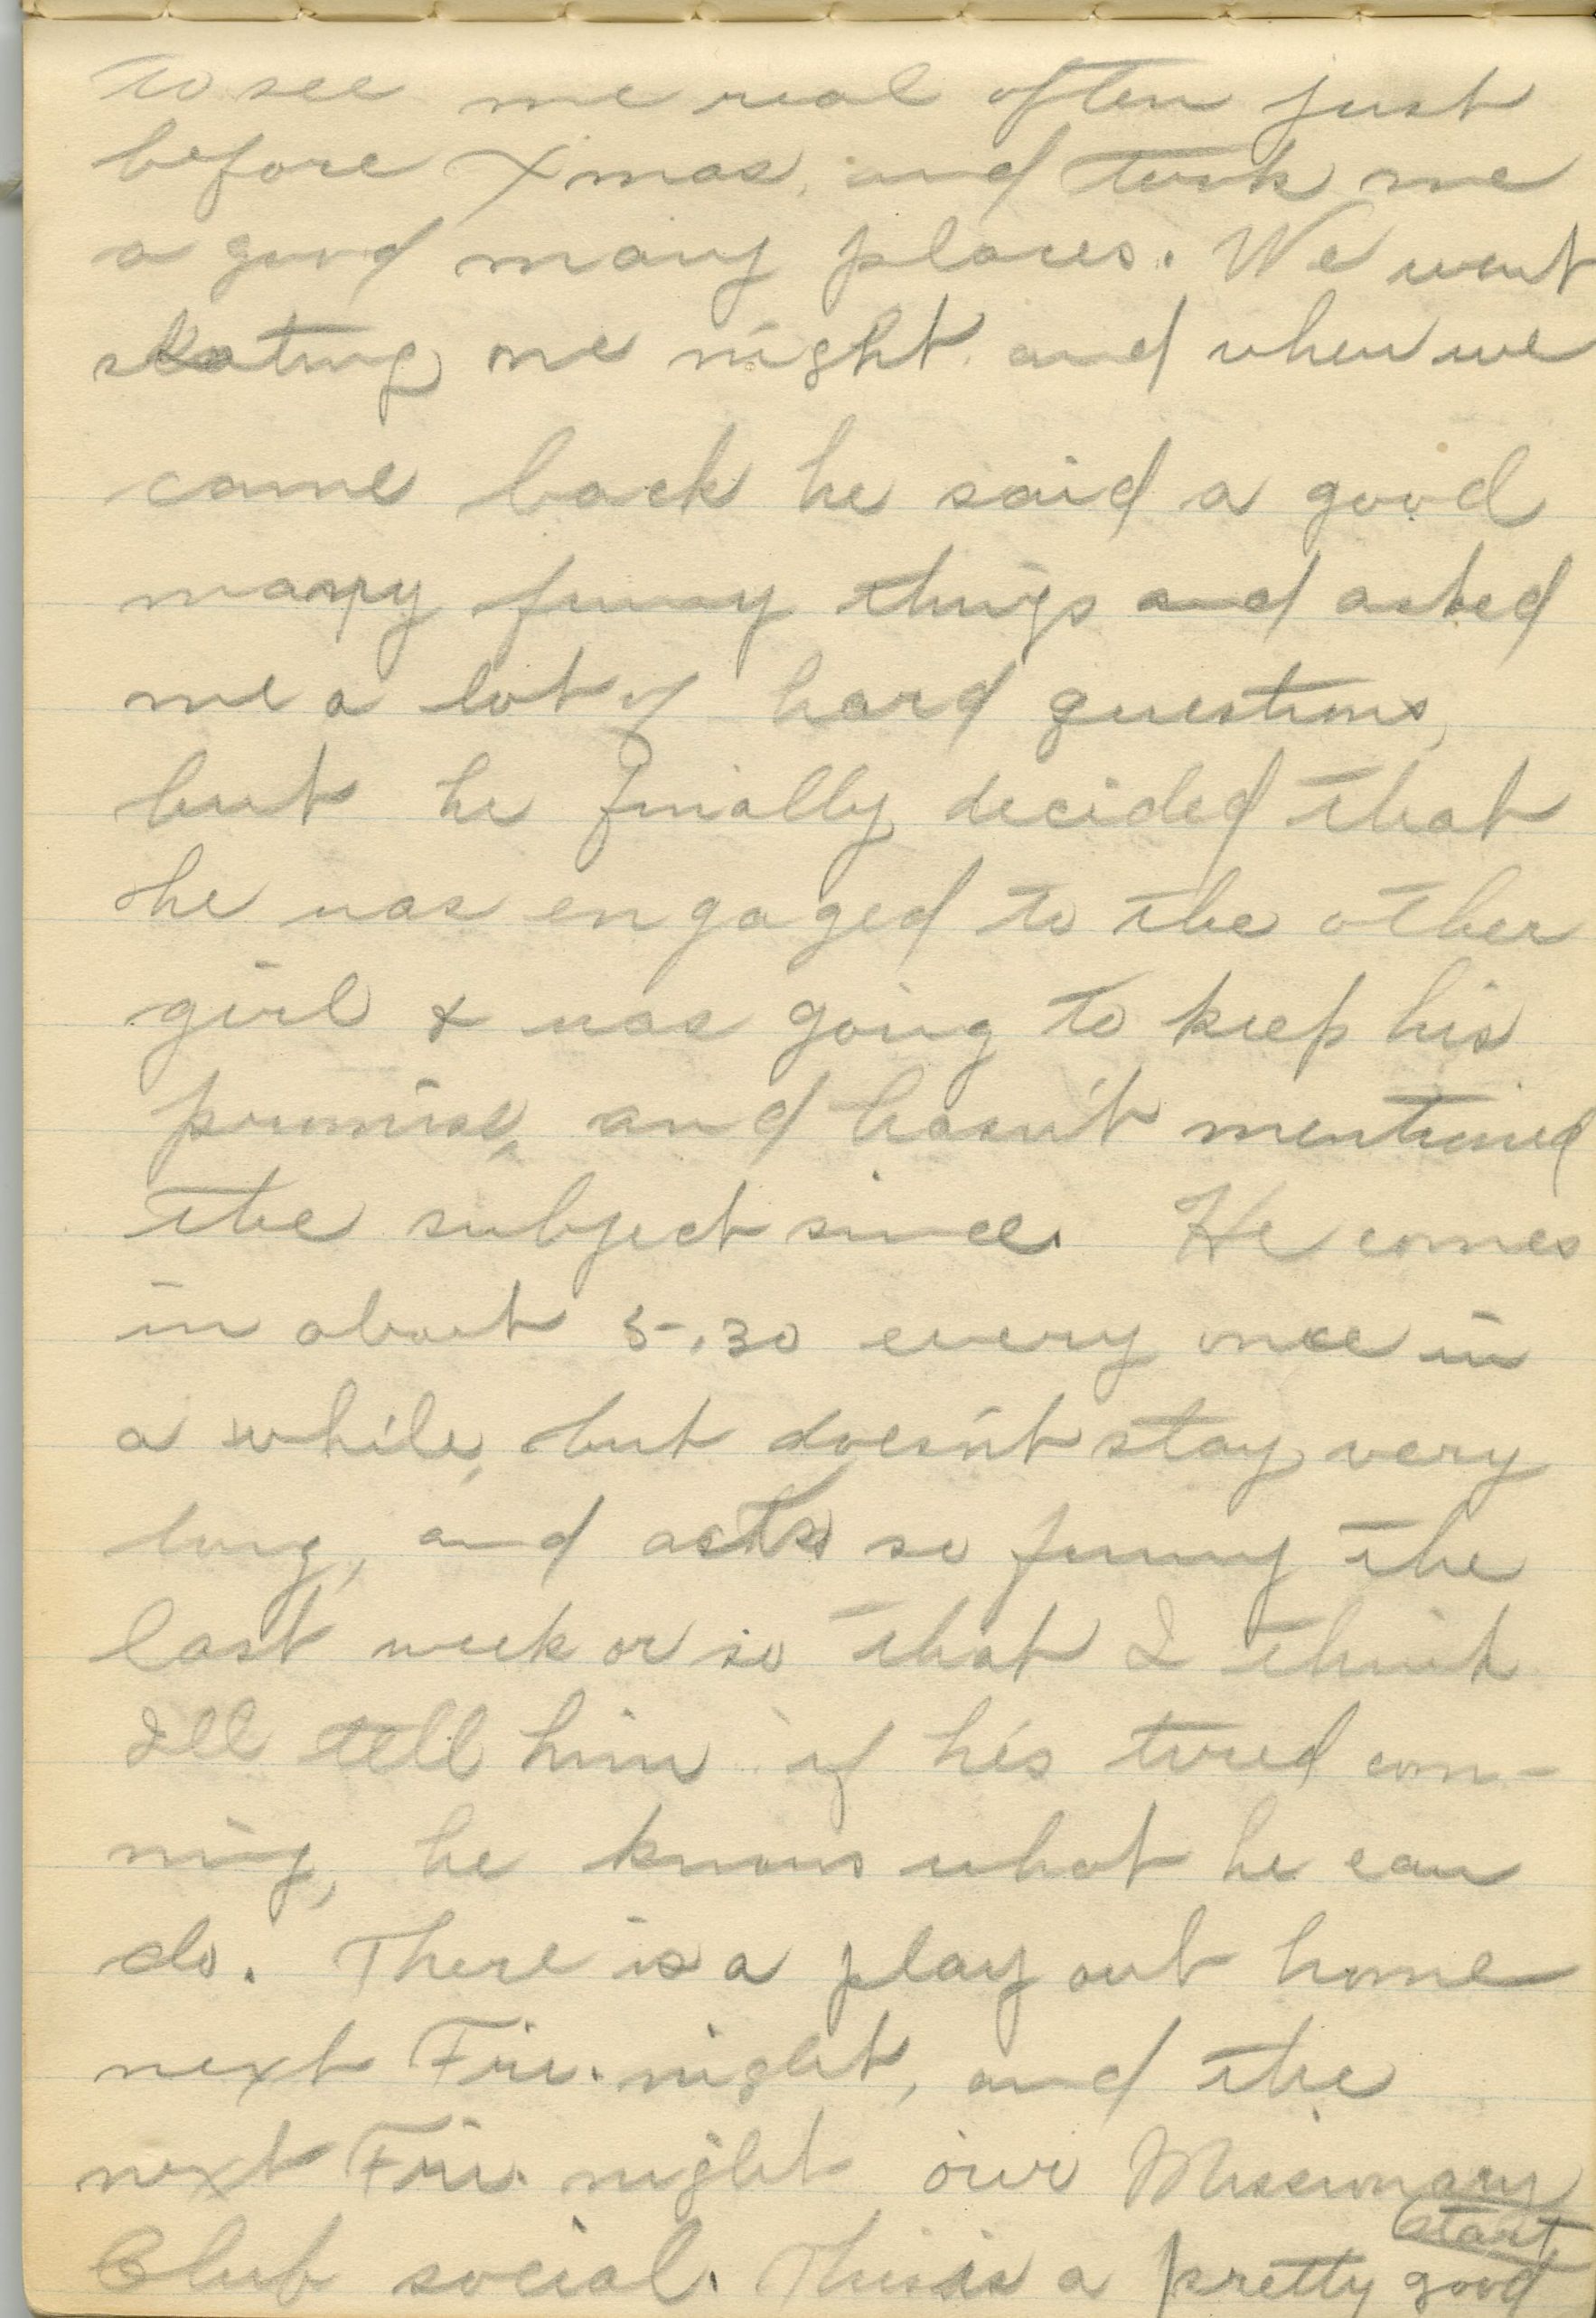 to see me real often just
before Xmas, and took me
a good many places. We went
skating one night and when we
came back he said a good
many funny things and asked
me a lot of hard questions,
but he finally decided that
he was engaged to the other
girl & was going to keep his
promise, and hasn't mentioned
the subject since. He comes
in about 5.30 every once in
a while, but doesn't stay very
long, and acts so funny the
last week or so that I think
I'll tell him if he's tired com-
ning, he knows what he can
do. There is a play out home
next Fri. night, and the
next Fri. night our Missionary
start
Club social. This is a pretty good